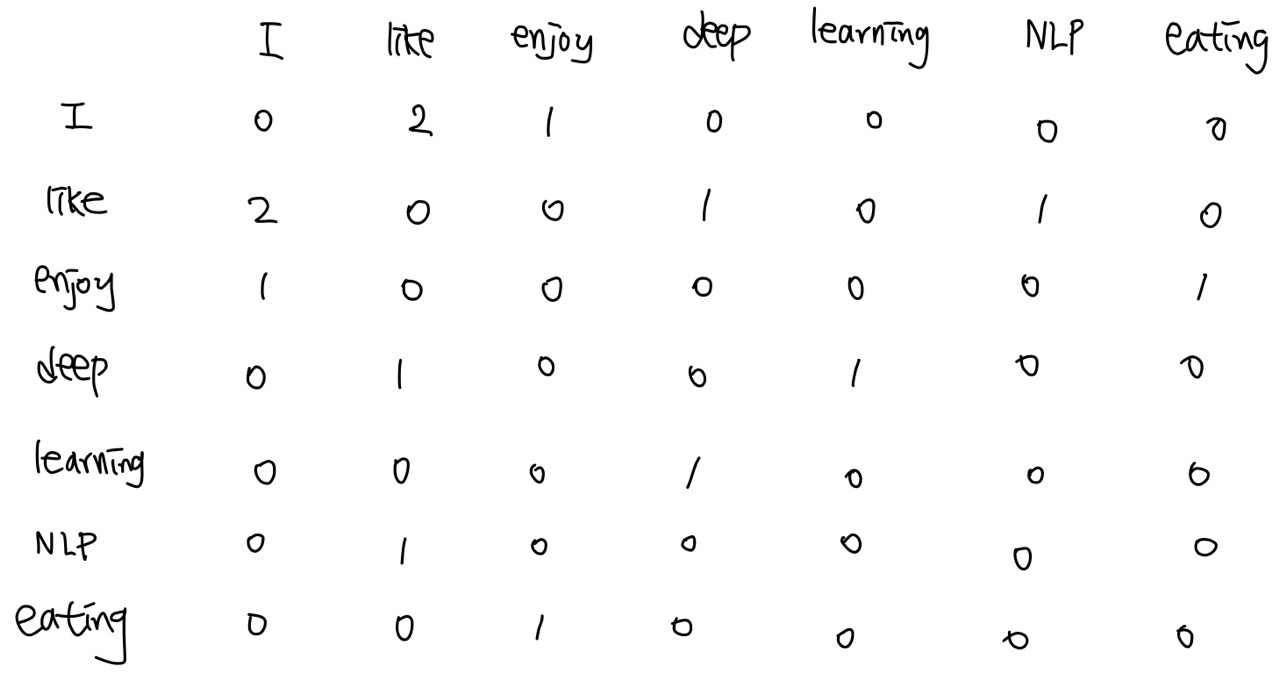 I like enjoy deep learning NLP eating
I 0 2 1 0 0 0 0
like 2 0 0 1 0 1 0
enjoy 1 0 0 0 0 0 1
deep 0 1 0 0 1 0 0
learning 0 0 0 1 0 0 0
NLP 0 1 0 0 0 0 0
eating 0 0 1 0 0 0 0